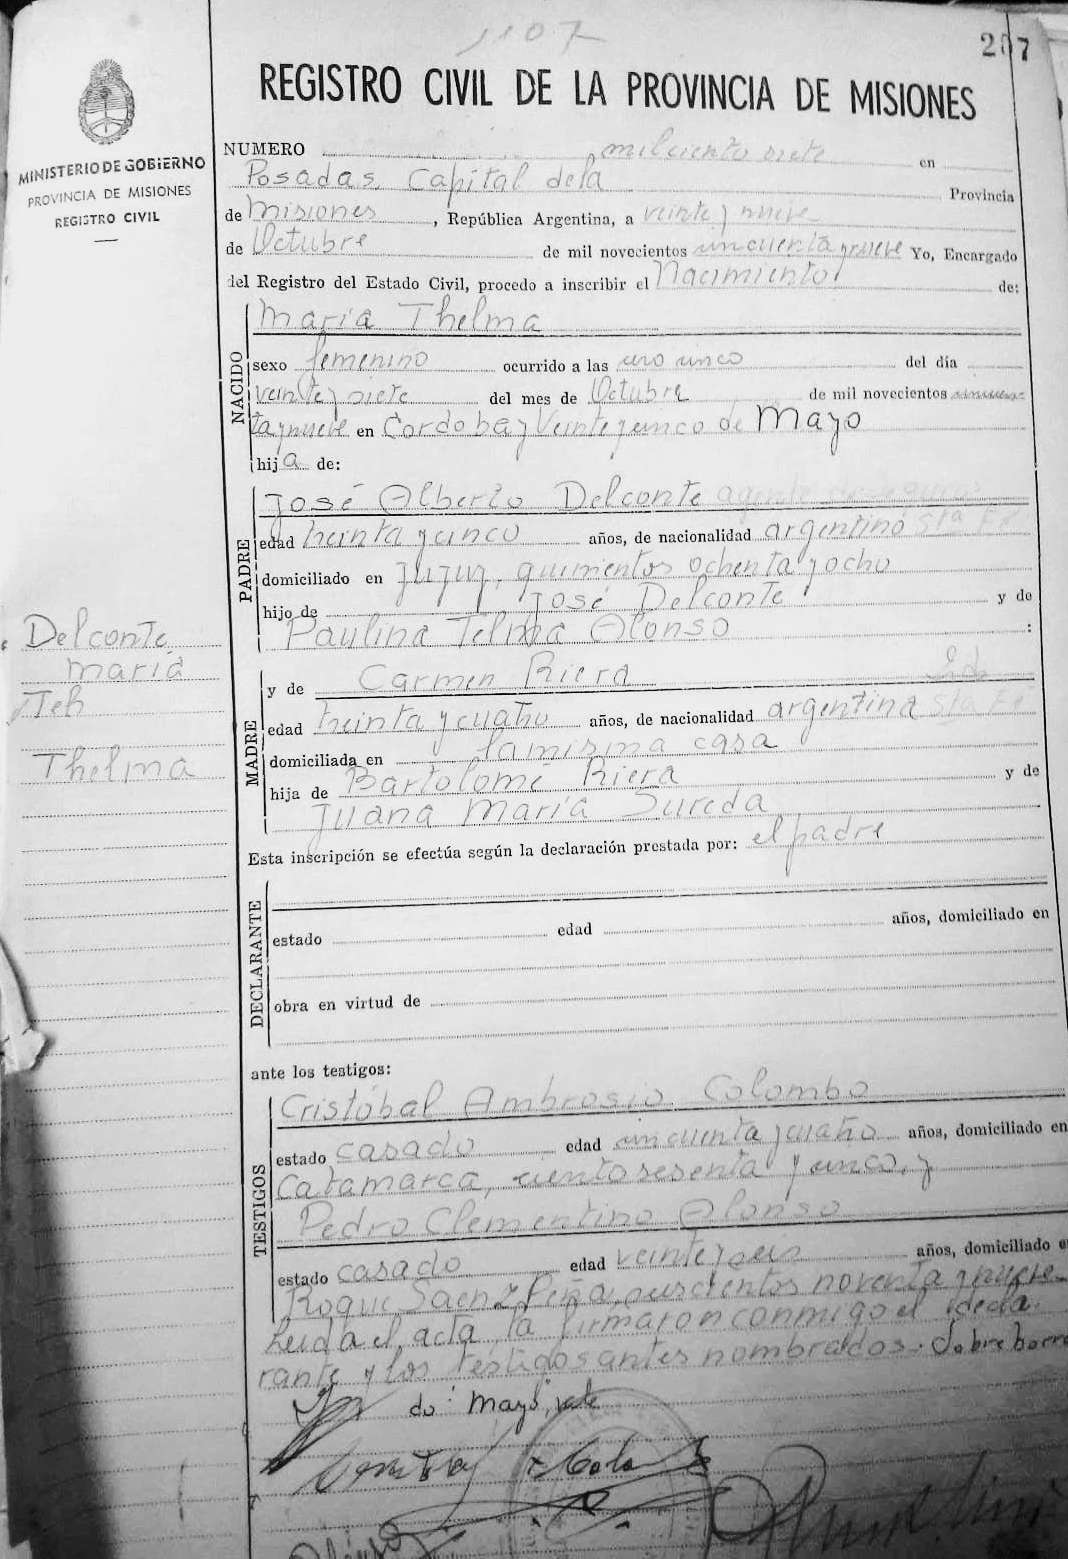 1107
207
REGISTRO CIVIL DE LA PROVINCIA DE MISIONES
MINISTERIO DE GOBIERNO
PROVINCIA DE MISIONES
REGISTRO CIVIL
NUMERO milciento siete en
Posadas, Capital dela Provincia
de Misiones, República Argentina, a veinte y nueve
de Octubre de mil novecientos cincuenta y nueve Yo, Encargado
del Registro del Estado Civil, procedo a inscribir el Nacimiento de:
NACIDO
María Thelma
sexo femenino ocurrido a las cero cinco del día
veinte y siete del mes de Octubre de mil novecientos cincuen
ta y nueve en Cordoba y Veinte y cinco de Mayo
hija de:
PADRE
José Alberto Delconte agente
edad treinta y cinco años, de nacionalidad argentino Sta Fe
domiciliado en Jujuy, quinientos ochenta y ocho
hijo de José Delconte y de
Paulina Telma Alonso :
Delconte
María
Teh
Thelma
MADRE
y de Carmen Riera
edad treinta y cuatro años, de nacionalidad argentina Sta Fe
domiciliada en la misma casa
hija de Bartolomé Riera y de
Juana María Sureda
Esta inscripción se efectúa según la declaración prestada por: el padre
DECLARANTE
estado edad años, domiciliado en
obra en virtud de
ante los testigos:
TESTIGOS
Cristóbal Ambrosio Colombo
estado casado edad cincuenta y cuatro años, domiciliado en
Catamarca, ciento sesenta y cinco, y
Pedro Clementino Alonso
estado casado edad veinte y seis años, domiciliado e
Roque Saenz Peña, seiscientos noventa y nueve
Leida el acta, la firmaron conmigo el decla
rante y los testigos antes nombrados. Sobre borra
do: Mayo, siete